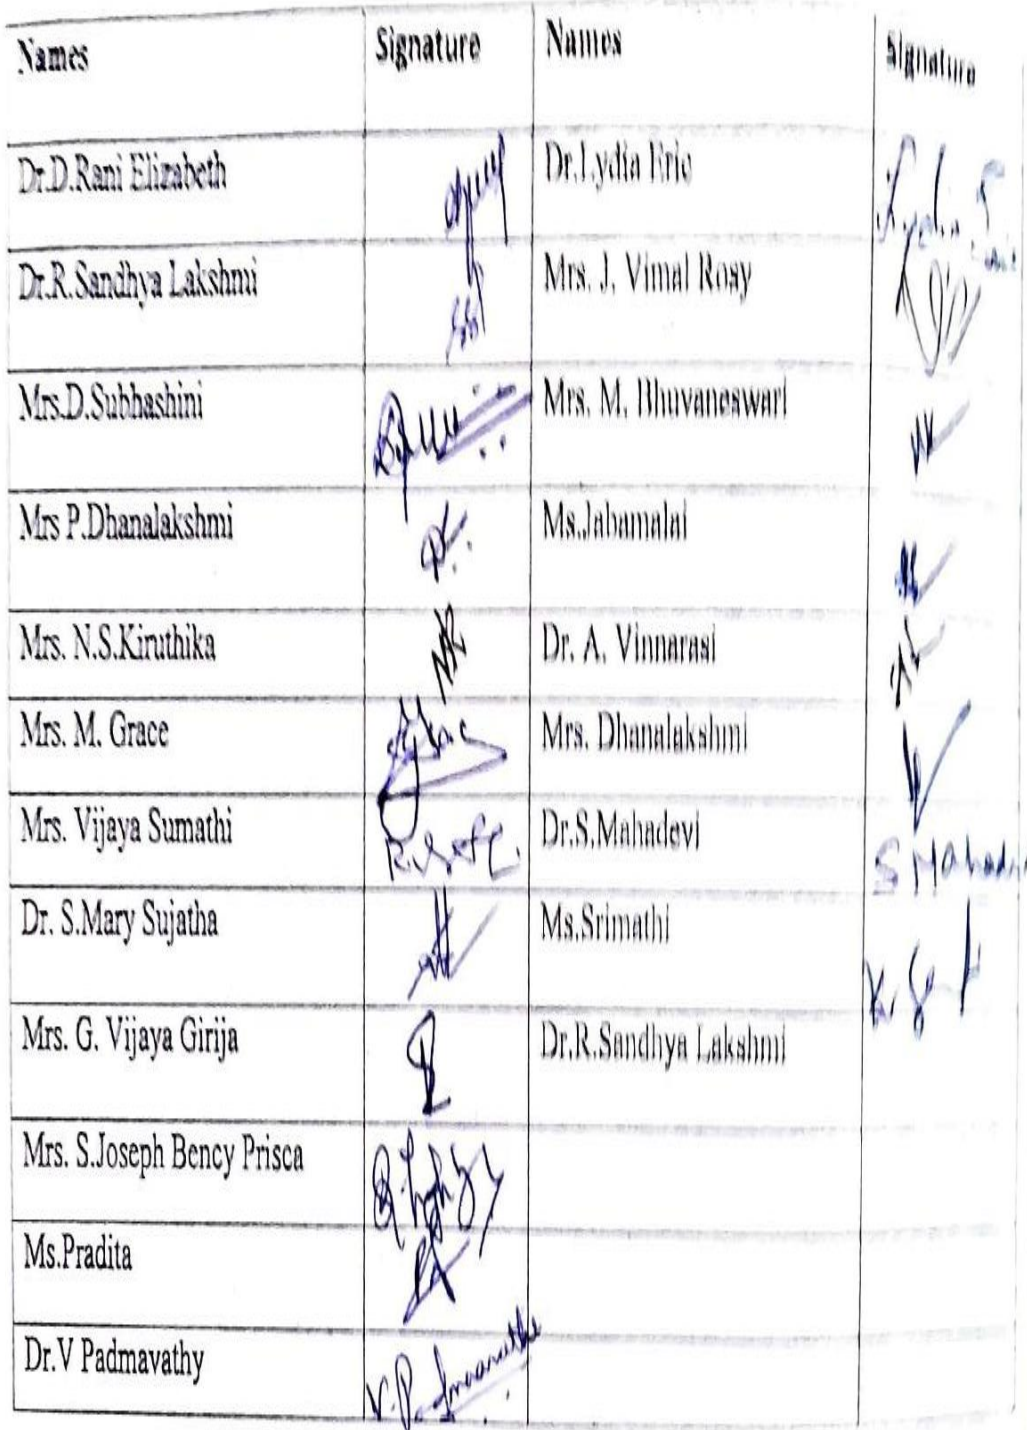 Names Signature Names Signature
Dr.D.Rani Elizabeth Dr.Lydia Eric Lydia Eric
Dr.R.Sandhya Lakshmi Mrs. J. Vimal Rosy
Mrs.D.Subhashini Mrs. M. Bhuvaneswari
Mrs P.Dhanalakshmi Ms.Jabamalai
Mrs. N.S.Kiruthika Dr. A. Vinnarasi
Mrs. M. Grace Mrs. Dhanalakshmi
Mrs. Vijaya Sumathi Dr.S.Mahadevi S Mahadevi
Dr. S.Mary Sujatha Ms.Srimathi
Mrs. G. Vijaya Girija Dr.R.Sandhya Lakshmi
Mrs. S.Joseph Bency Prisca
Ms.Pradita
Dr.V Padmavathy